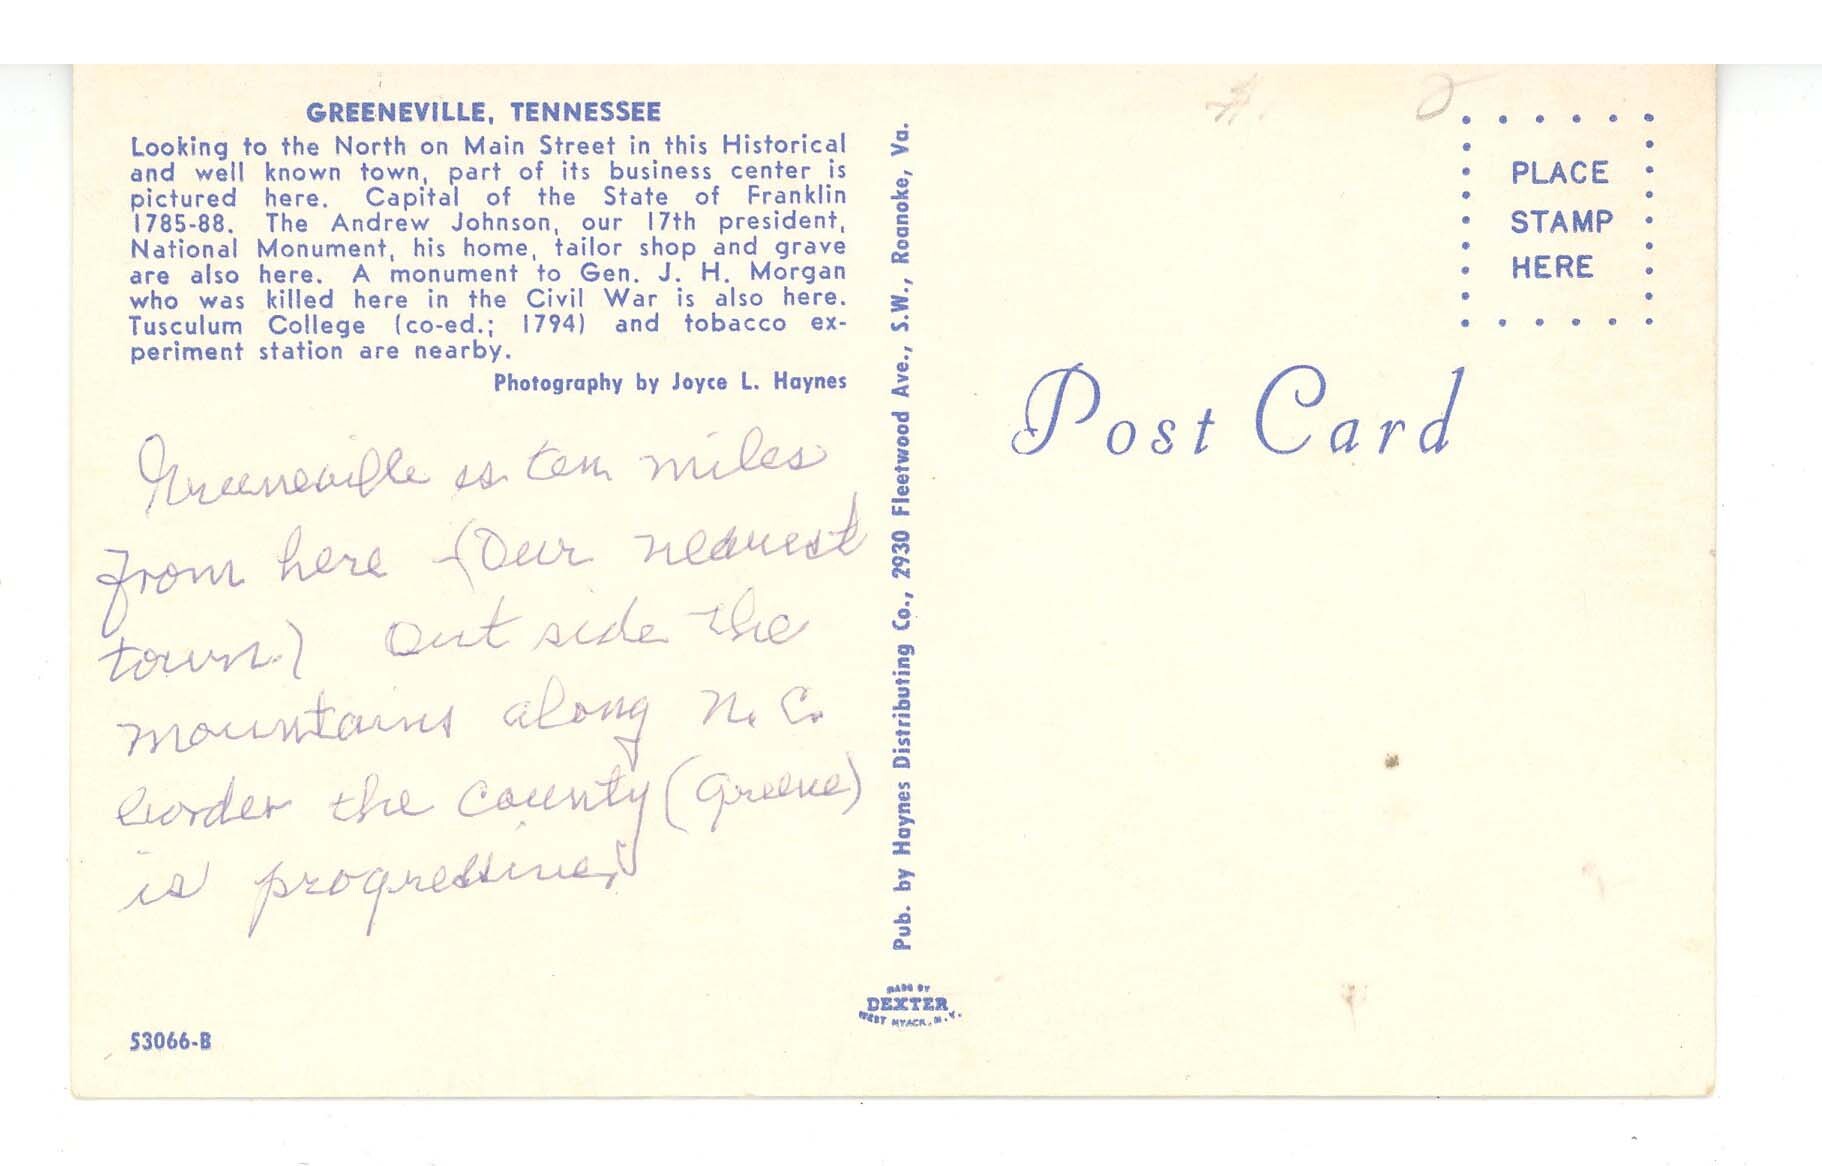 GREENEVILLE, TENNESSEE
Looking to the North on Main Street in this Historical
and well known town, part of its business center is
pictured here. Capital of the State of Franklin
1785-88. The Andrew Johnson, our 17th president,
National Monument, his home, tailor shop and grave
are also here. A monument to Gen. J. H. Morgan
who was killed here in the Civil War is also here.
Tusculum College (co-ed.; 1794) and tobacco ex-
periment station are nearby.
Photography by Joyce L. Haynes
Greeneville is ten miles
from here (Our nearest
town.) Out side the
mountains along N. C.
border the county (Greene)
is progressive.
53066-B
Pub. by Haynes Distributing Co., 2930 Fleetwood Ave., S.W., Roanoke, Va.
MADE BY
DEXTER
WEST NYACK, N.Y.
PLACE
STAMP
HERE
Post Card